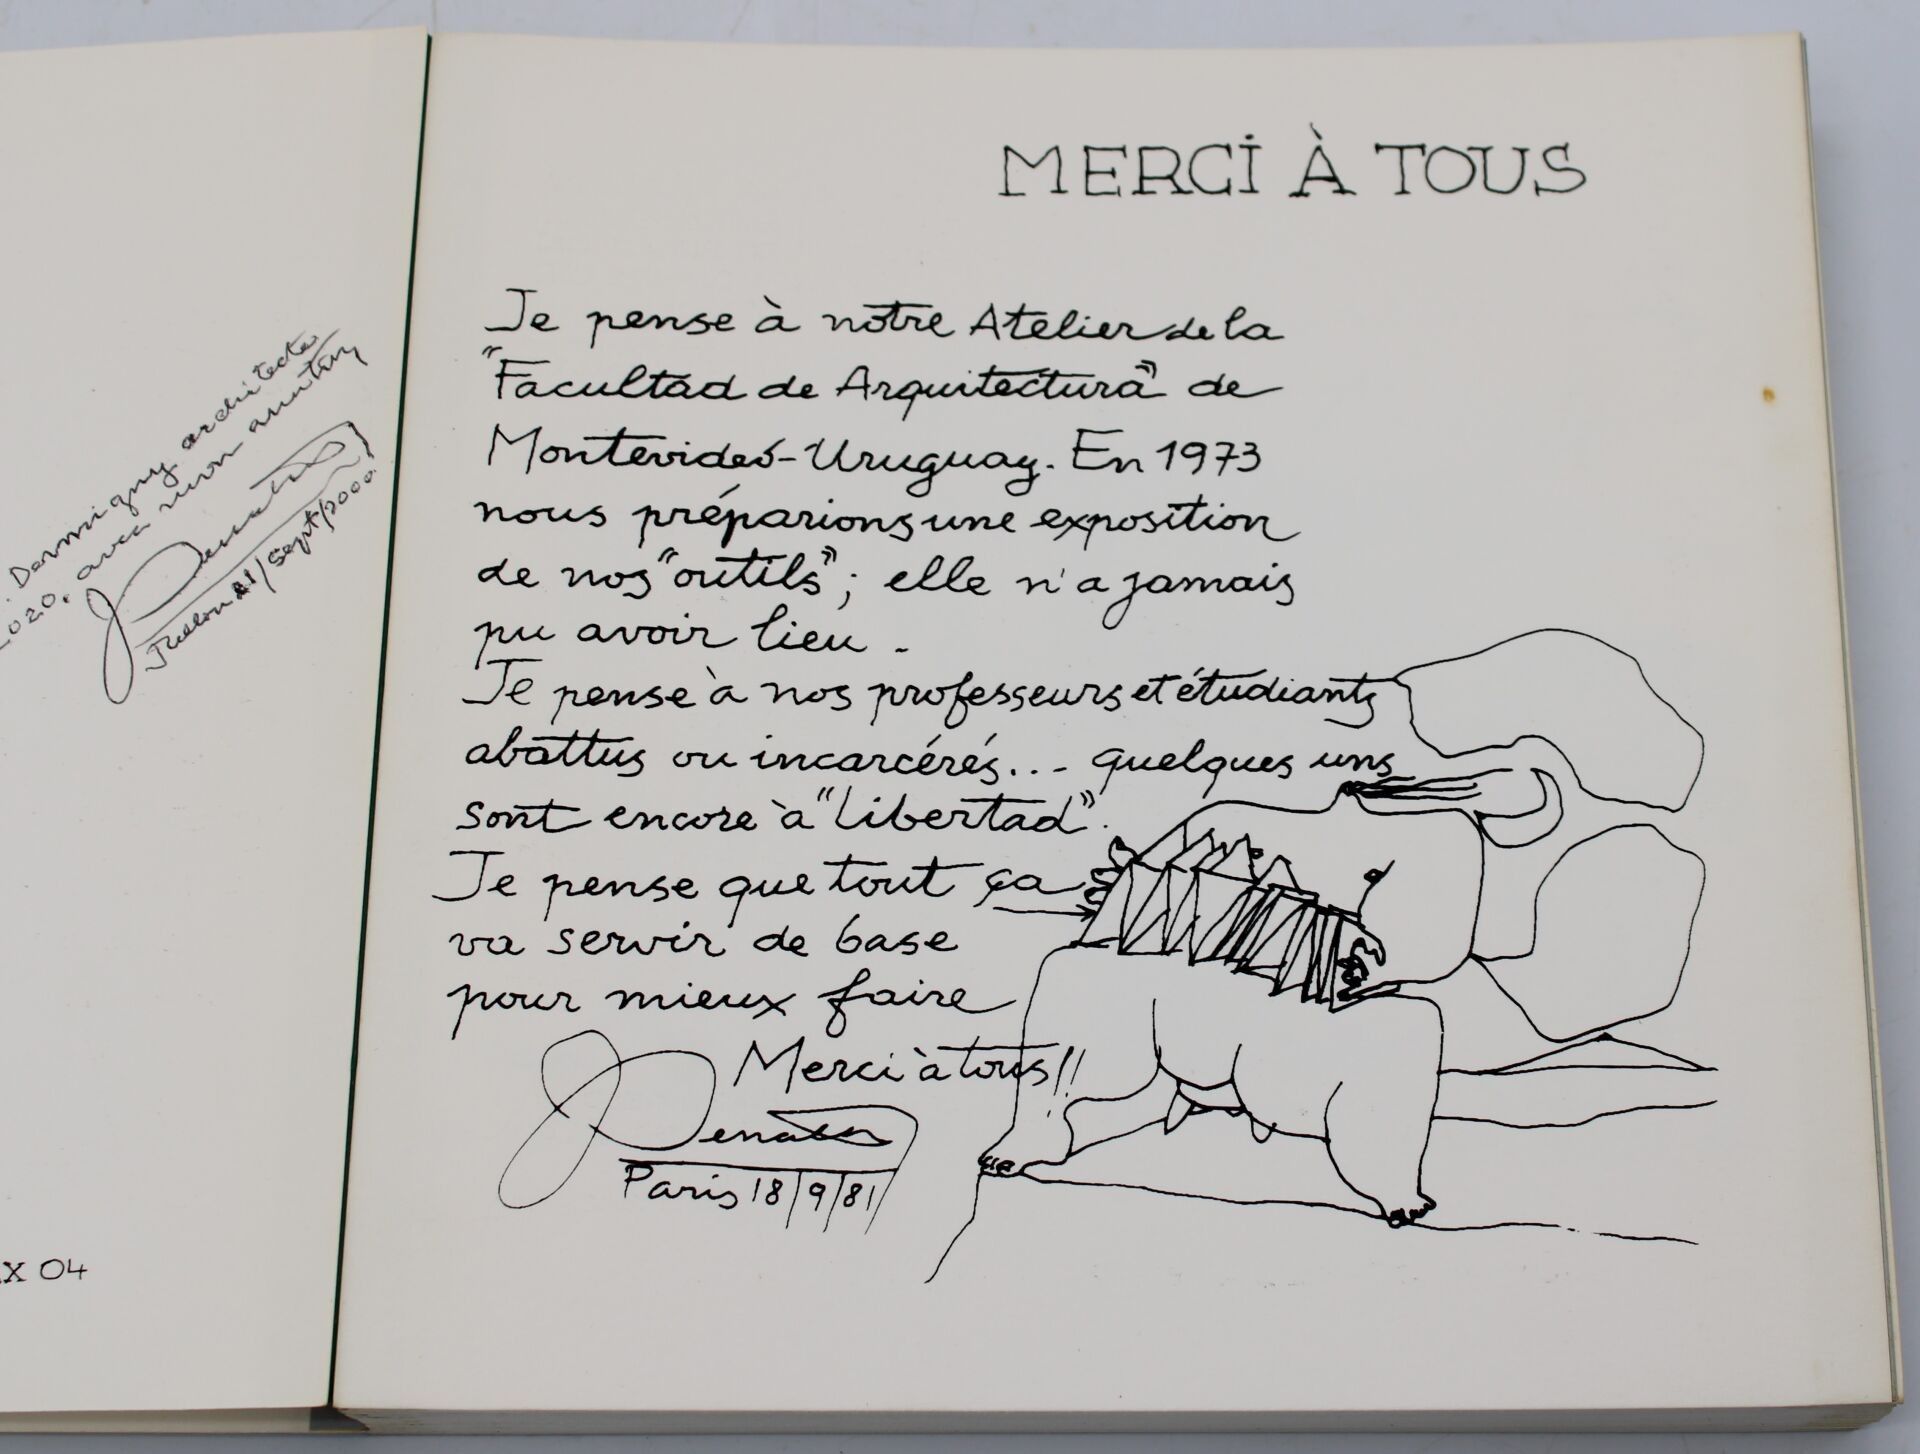 Dermigny architecte
2020. avec mon amitié
Renato
21/sept/2000
X 04
MERCI À TOUS
Je pense à notre Atelier de la
"Facultad de Arquitectura" de
Montevideó-Uruguay. En 1973
nous préparions une exposition
de nos "outils"; elle n'a jamais
pu avoir lieu.
Je pense à nos professeurs et étudiants
abattus ou incarcérés... quelques uns
sont encore à "libertad".
Je pense que tout ça
va servir de base
pour mieux faire
Merci à tous!!
Paris 18/9/81